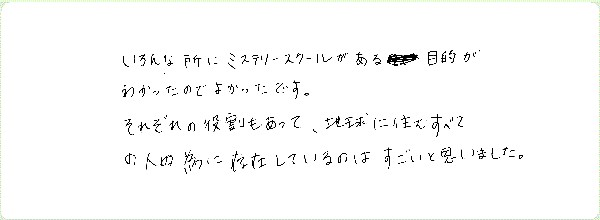 いろんな所にミステリースクールがある目的が
わかったのでよかったです。
それぞれの役割もあって、地球に住むすべて
の人の為に存在しているのはすごいと思いました。